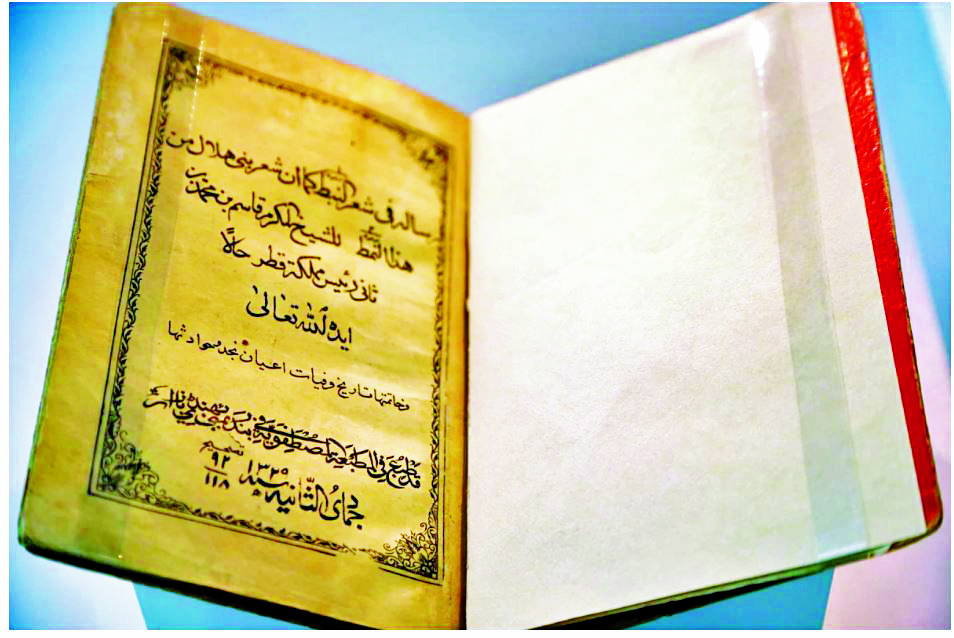 رسالة في شعر النبط كما ان شعر بني هلال من
هذا النمط للشيخ المكرم قاسم بن محمد بن
ثاني رئيس مملكة قطر حالًا
ايده الله تعالى
وخاتمتها تاريخ وفيات اعيان نجد وحوادثها
قد طبع في المطبعة المصطفوية في بندر بمبئي
جمادى الثانية سنه ١٣٢٨
٩٢
١١٨